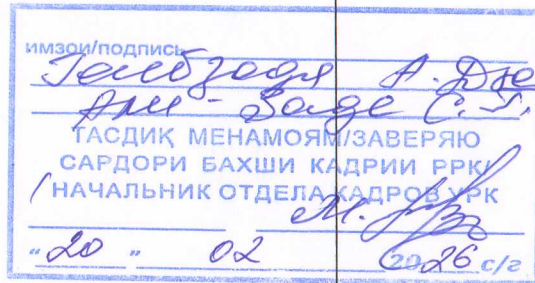 имзои/подпись
А. Дж
Али-Заде С.
ТАСДИҚ МЕНАМОЯМ/ЗАВЕРЯЮ
САРДОРИ БАХШИ КАДРИИ РРК/
НАЧАЛЬНИК ОТДЕЛА КАДРОВ УРК
М.
"20" 02 2026 с/г